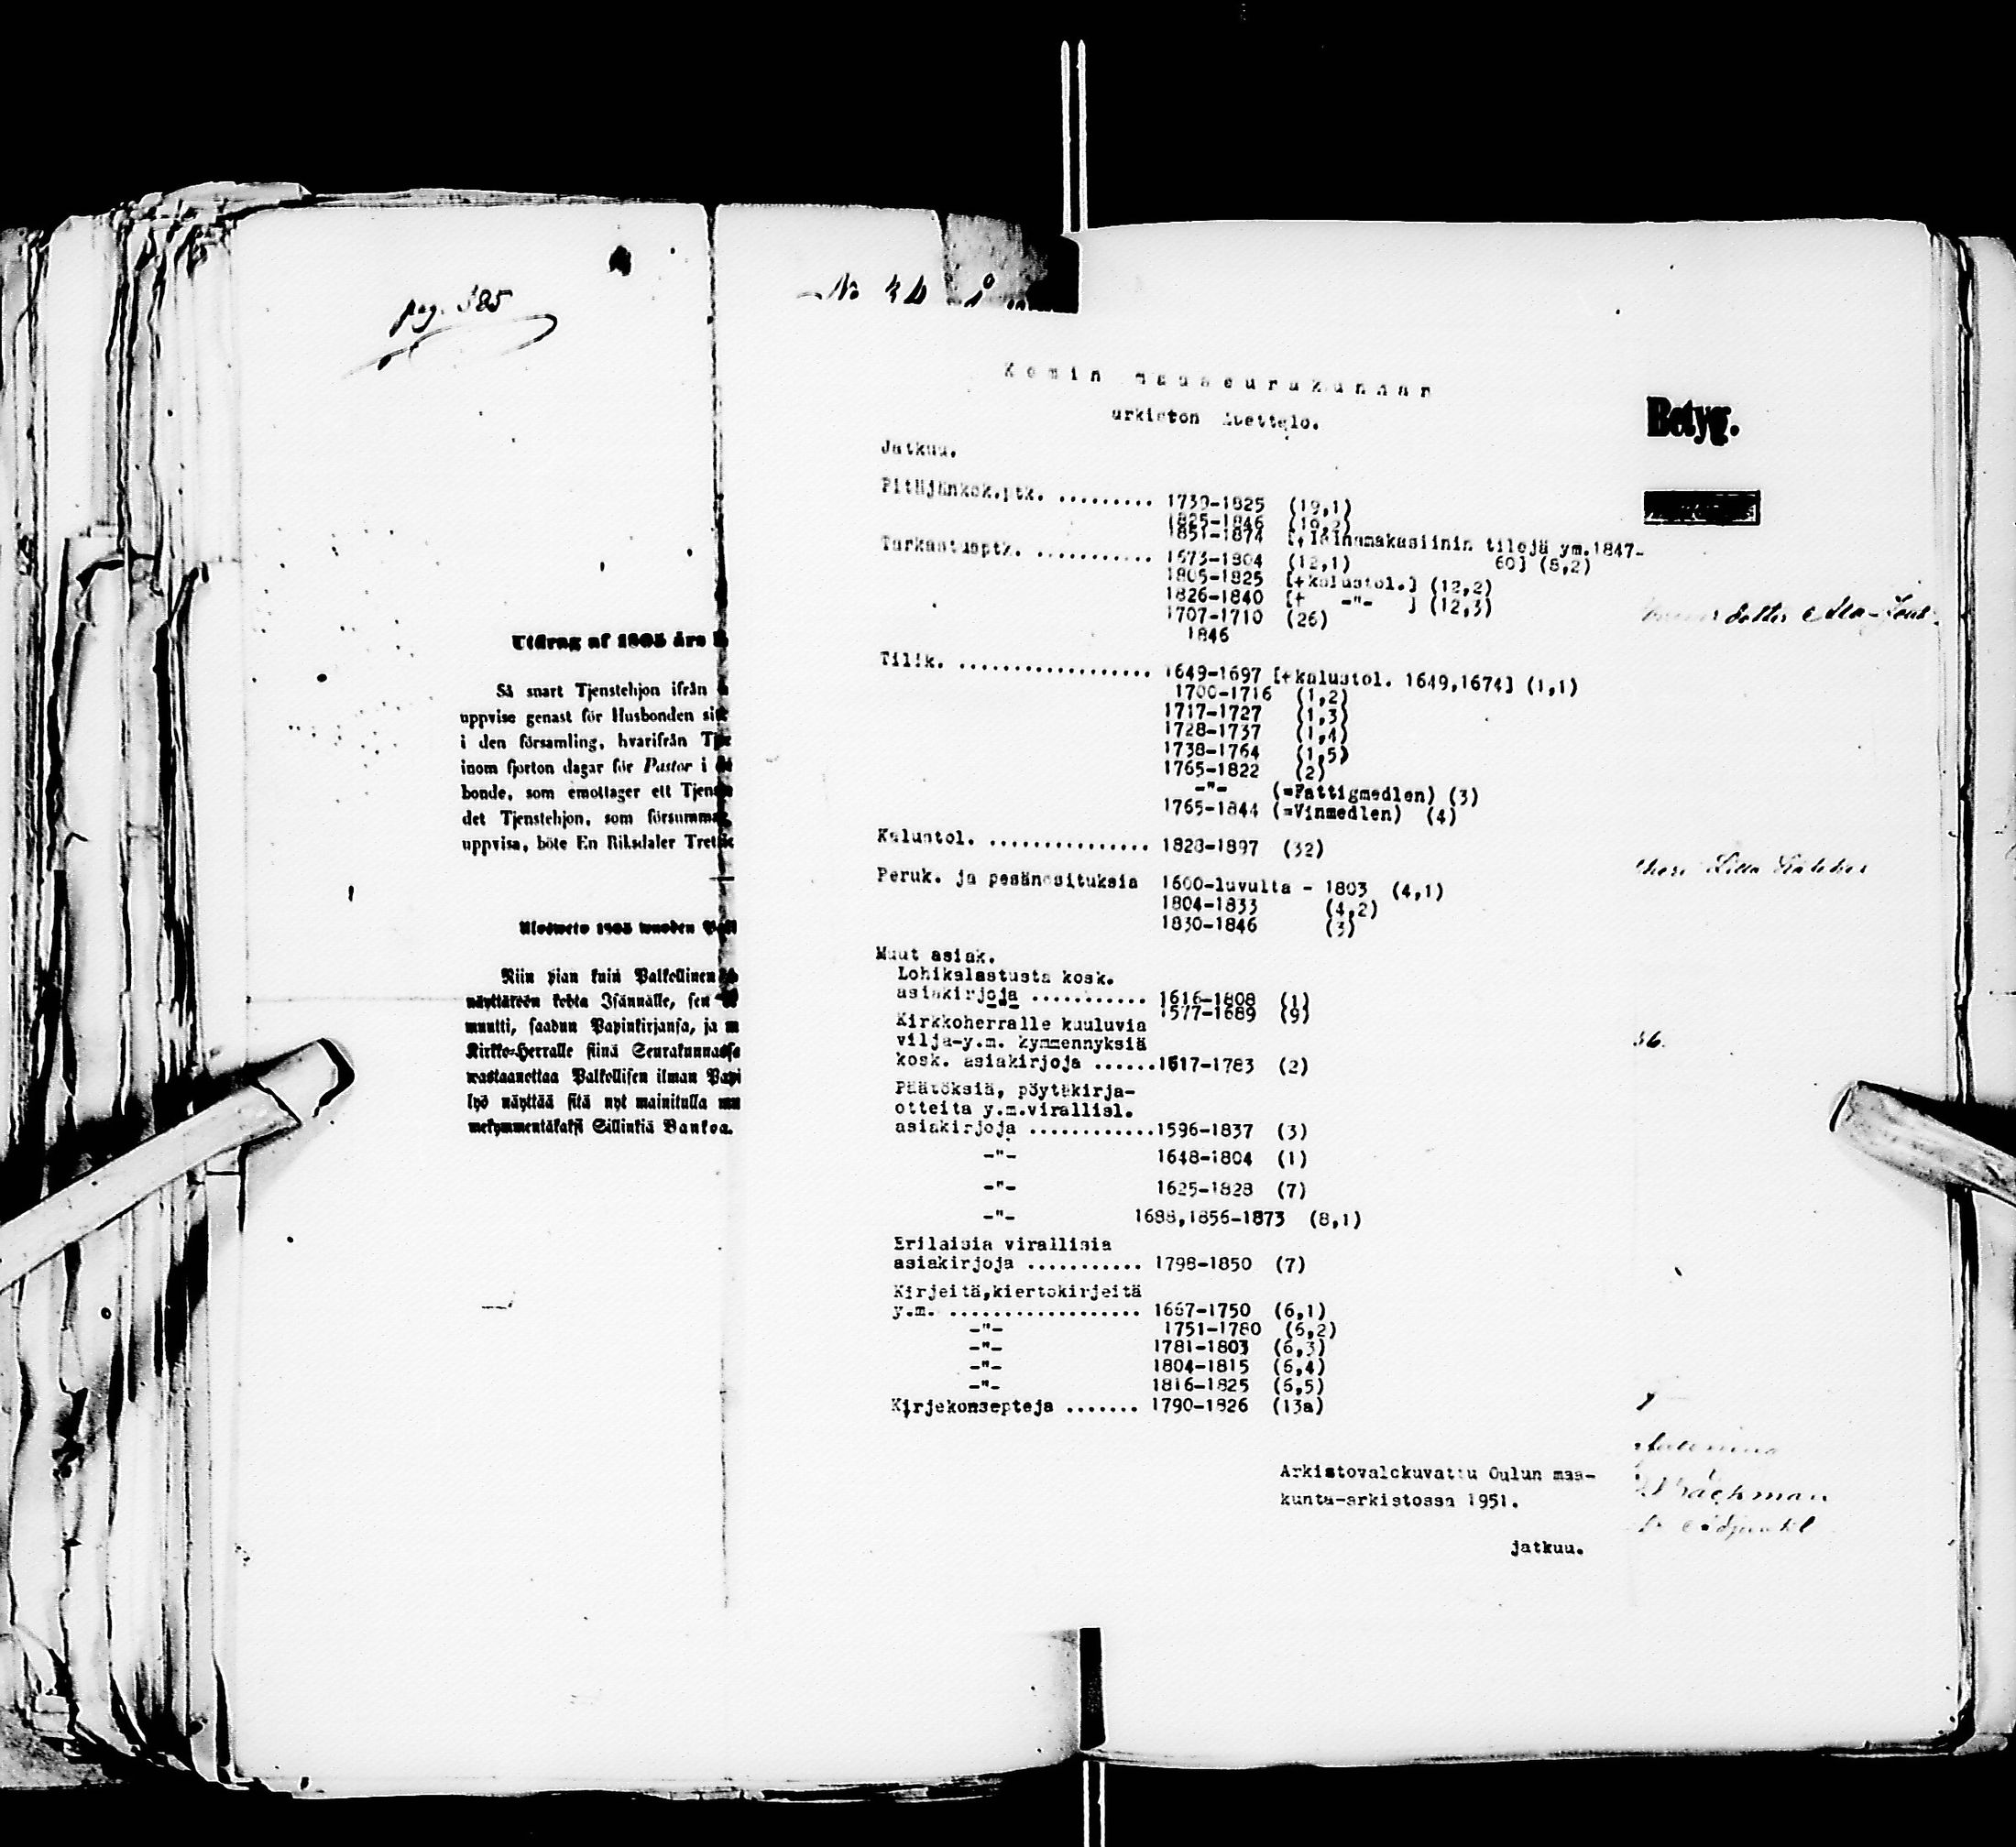 pag. 385
No
K e m i n m a a s e u r a k u n n a n
arkiston luettelo.
Jatkuu.
Pitäjänkok.ptk. ......... 1739-1825 (19,1)
1825-1846 (19,2)
1851-1874 [+lainamakasiinin tilejä ym.1847-
60] (8,2)
Tarkastusptk. ........... 1673-1804 (12,1)
1805-1825 [+kalustol.] (12,2)
1826-1840 [+ -"- ] (12,3)
1707-1710 (26)
1846
Tilik. .................. 1649-1697 [+kalustol. 1649,1674] (1,1)
1700-1716 (1,2)
1717-1727 (1,3)
1728-1737 (1,4)
1738-1764 (1,5)
1765-1822 (2)
-"- (=Fattigmedlen) (3)
1765-1844 (=Vinmedlen) (4)
Kalustol. ............... 1828-1897 (32)
Peruk. ja pesänosituksia 1600-luvulta - 1803 (4,1)
1804-1833 (4,2)
1830-1846 (3)
Muut asiak.
Lohikalastusta kosk.
asiakirjoja ........... 1616-1808 (1)
-"- 1577-1689 (9)
Kirkkoherralle kuuluvia
vilja-y.m. kymmennyksiä
kosk. asiakirjoja ......1617-1783 (2)
Päätöksiä, pöytäkirja-
otteita y.m.virallisl.
asiakirjoja ............1596-1837 (3)
-"- 1648-1804 (1)
-"- 1625-1828 (7)
-"- 1688,1856-1873 (8,1)
Erilaisia virallisia
asiakirjoja ........... 1798-1850 (7)
Kirjeitä,kiertokirjeitä
y.m. ................... 1667-1750 (6,1)
-"- 1751-1780 (6,2)
-"- 1781-1803 (6,3)
-"- 1804-1815 (6,4)
-"- 1816-1825 (6,5)
Kirjekonsepteja ....... 1790-1826 (13a)
Arkistovalokuvattu Oulun maa-
kunta-arkistossa 1951.
jatkuu.
Utdrag af 1805 års
Så snart Tjenstehjon ifrån
uppvise genast för Husbonden
i den församling, hvarifrån
inom fjorton dagar för Pastor i
bonde, som emottager ett
det Tjenstehjon, som
uppvisa, böte En Riksdaler
Ulosweto 1805 wuoden
Niin pian kuin Palkollinen
näyttäköön kohta Isännälle, sen
muutti, saadun Papinkirjansa, ja
Kirkko-Herralle siinä Seurakunnassa
wastaanottaa Palkollisen ilman
lyö näyttää sitä nyt mainitulla
mekymmentäkaksi Sillinkiä Bankoa.
Betyg.
dotter
36.